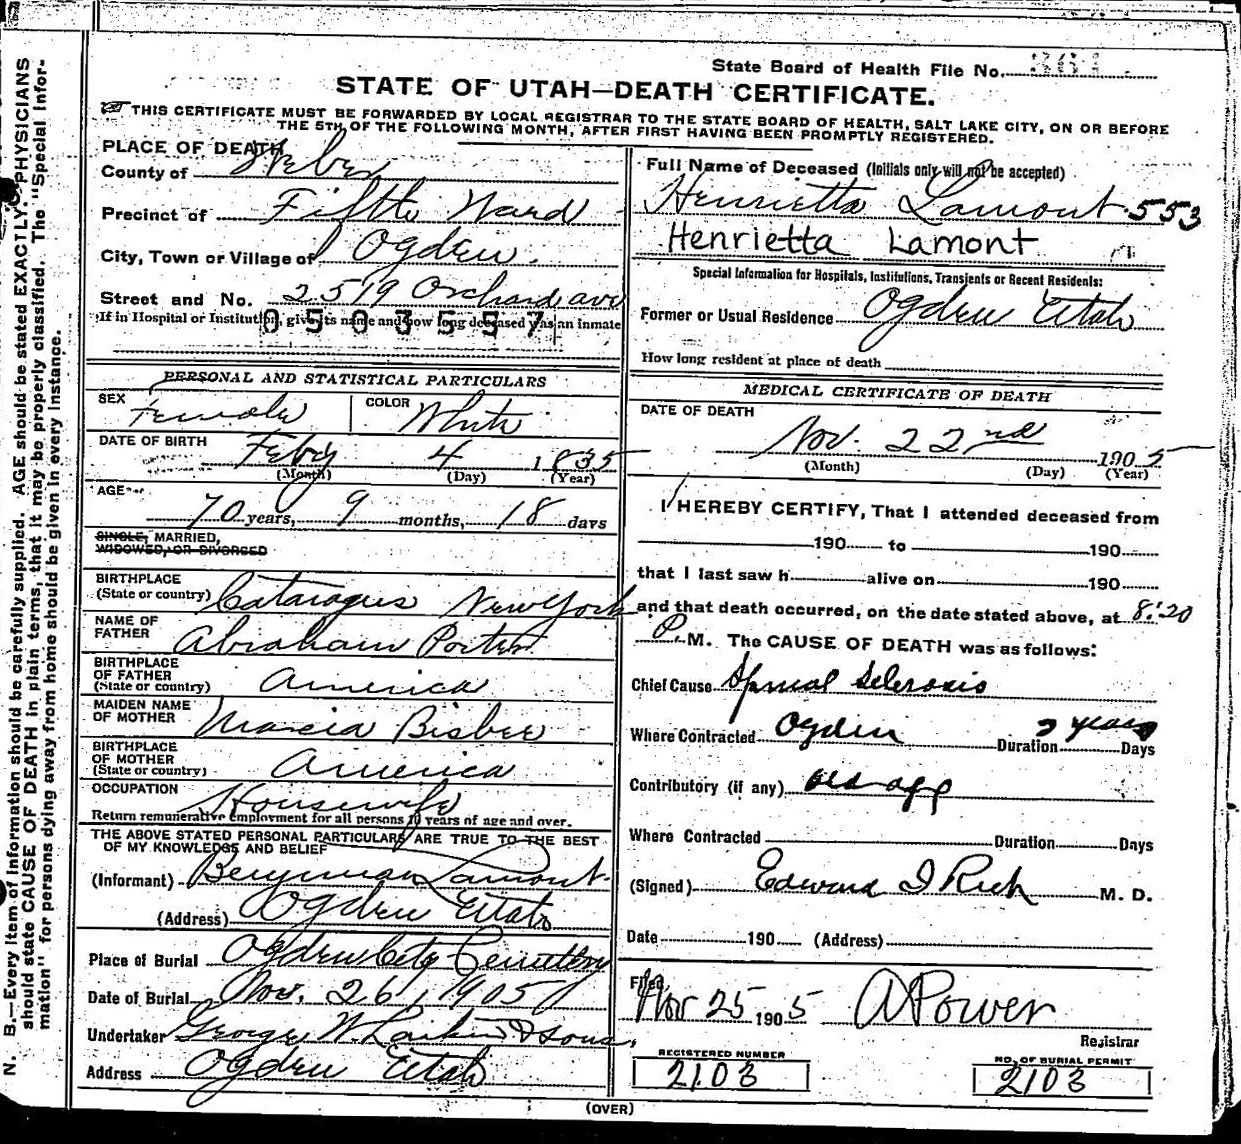 State Board of Health File No. 361
STATE OF UTAH—DEATH CERTIFICATE.
THIS CERTIFICATE MUST BE FORWARDED BY LOCAL REGISTRAR TO THE STATE BOARD OF HEALTH, SALT LAKE CITY, ON OR BEFORE
THE 5TH OF THE FOLLOWING MONTH, AFTER FIRST HAVING BEEN PROMPTLY REGISTERED.
PLACE OF DEATH
County of Weber
Precinct of Fifth Ward
City, Town or Village of Ogden.
Street and No. 2519 Orchard ave
If in Hospital or Institution, give its name and how long deceased was an inmate
0503557
PERSONAL AND STATISTICAL PARTICULARS
SEX Female COLOR White
DATE OF BIRTH Feby 4 1835
(Month) (Day) (Year)
AGE
70 years, 9 months, 18 days
SINGLE, MARRIED,
WIDOWED, OR DIVORCED
BIRTHPLACE
(State or country) Cataragus New York
NAME OF
FATHER Abraham Porter
BIRTHPLACE
OF FATHER
(State or country) America
MAIDEN NAME
OF MOTHER Marcia Bisbee
BIRTHPLACE
OF MOTHER
(State or country) America
OCCUPATION Housewife
Return remunerative employment for all persons 10 years of age and over.
THE ABOVE STATED PERSONAL PARTICULARS ARE TRUE TO THE BEST
OF MY KNOWLEDGE AND BELIEF
(Informant) Benjman Lamont.
(Address) Ogden Utah
Place of Burial Ogden City Cemetery
Date of Burial Nov. 26, 1905
Undertaker George W. Larkin & Sons.
Address Ogden Utah
Full Name of Deceased (Initials only will not be accepted)
Henrietta Lamont 553
Henrietta Lamont
Special Information for Hospitals, Institutions, Transients or Recent Residents:
Former or Usual Residence Ogden Utah
How long resident at place of death
MEDICAL CERTIFICATE OF DEATH
DATE OF DEATH
Nov. 22nd 1905
(Month) (Day) (Year)
I HEREBY CERTIFY, That I attended deceased from
190 to 190
that I last saw h alive on 190
and that death occurred, on the date stated above, at 8:20
P. M. The CAUSE OF DEATH was as follows:
Chief Cause Spinal Sclerosis
Where Contracted Ogden Duration years Days
Contributory (if any) old age
Where Contracted Duration Days
(Signed) Edward I Rich M. D.
Date 190 (Address)
Filed
Nov 25 1905 A Power
Registrar
REGISTERED NUMBER
2103
NO. OF BURIAL PERMIT
2103
(OVER)
N. B.—Every item of information should be carefully supplied. AGE should be stated EXACTLY. PHYSICIANS
should state CAUSE OF DEATH in plain terms, that it may be properly classified. The "Special Infor-
mation" for persons dying away from home should be given in every instance.